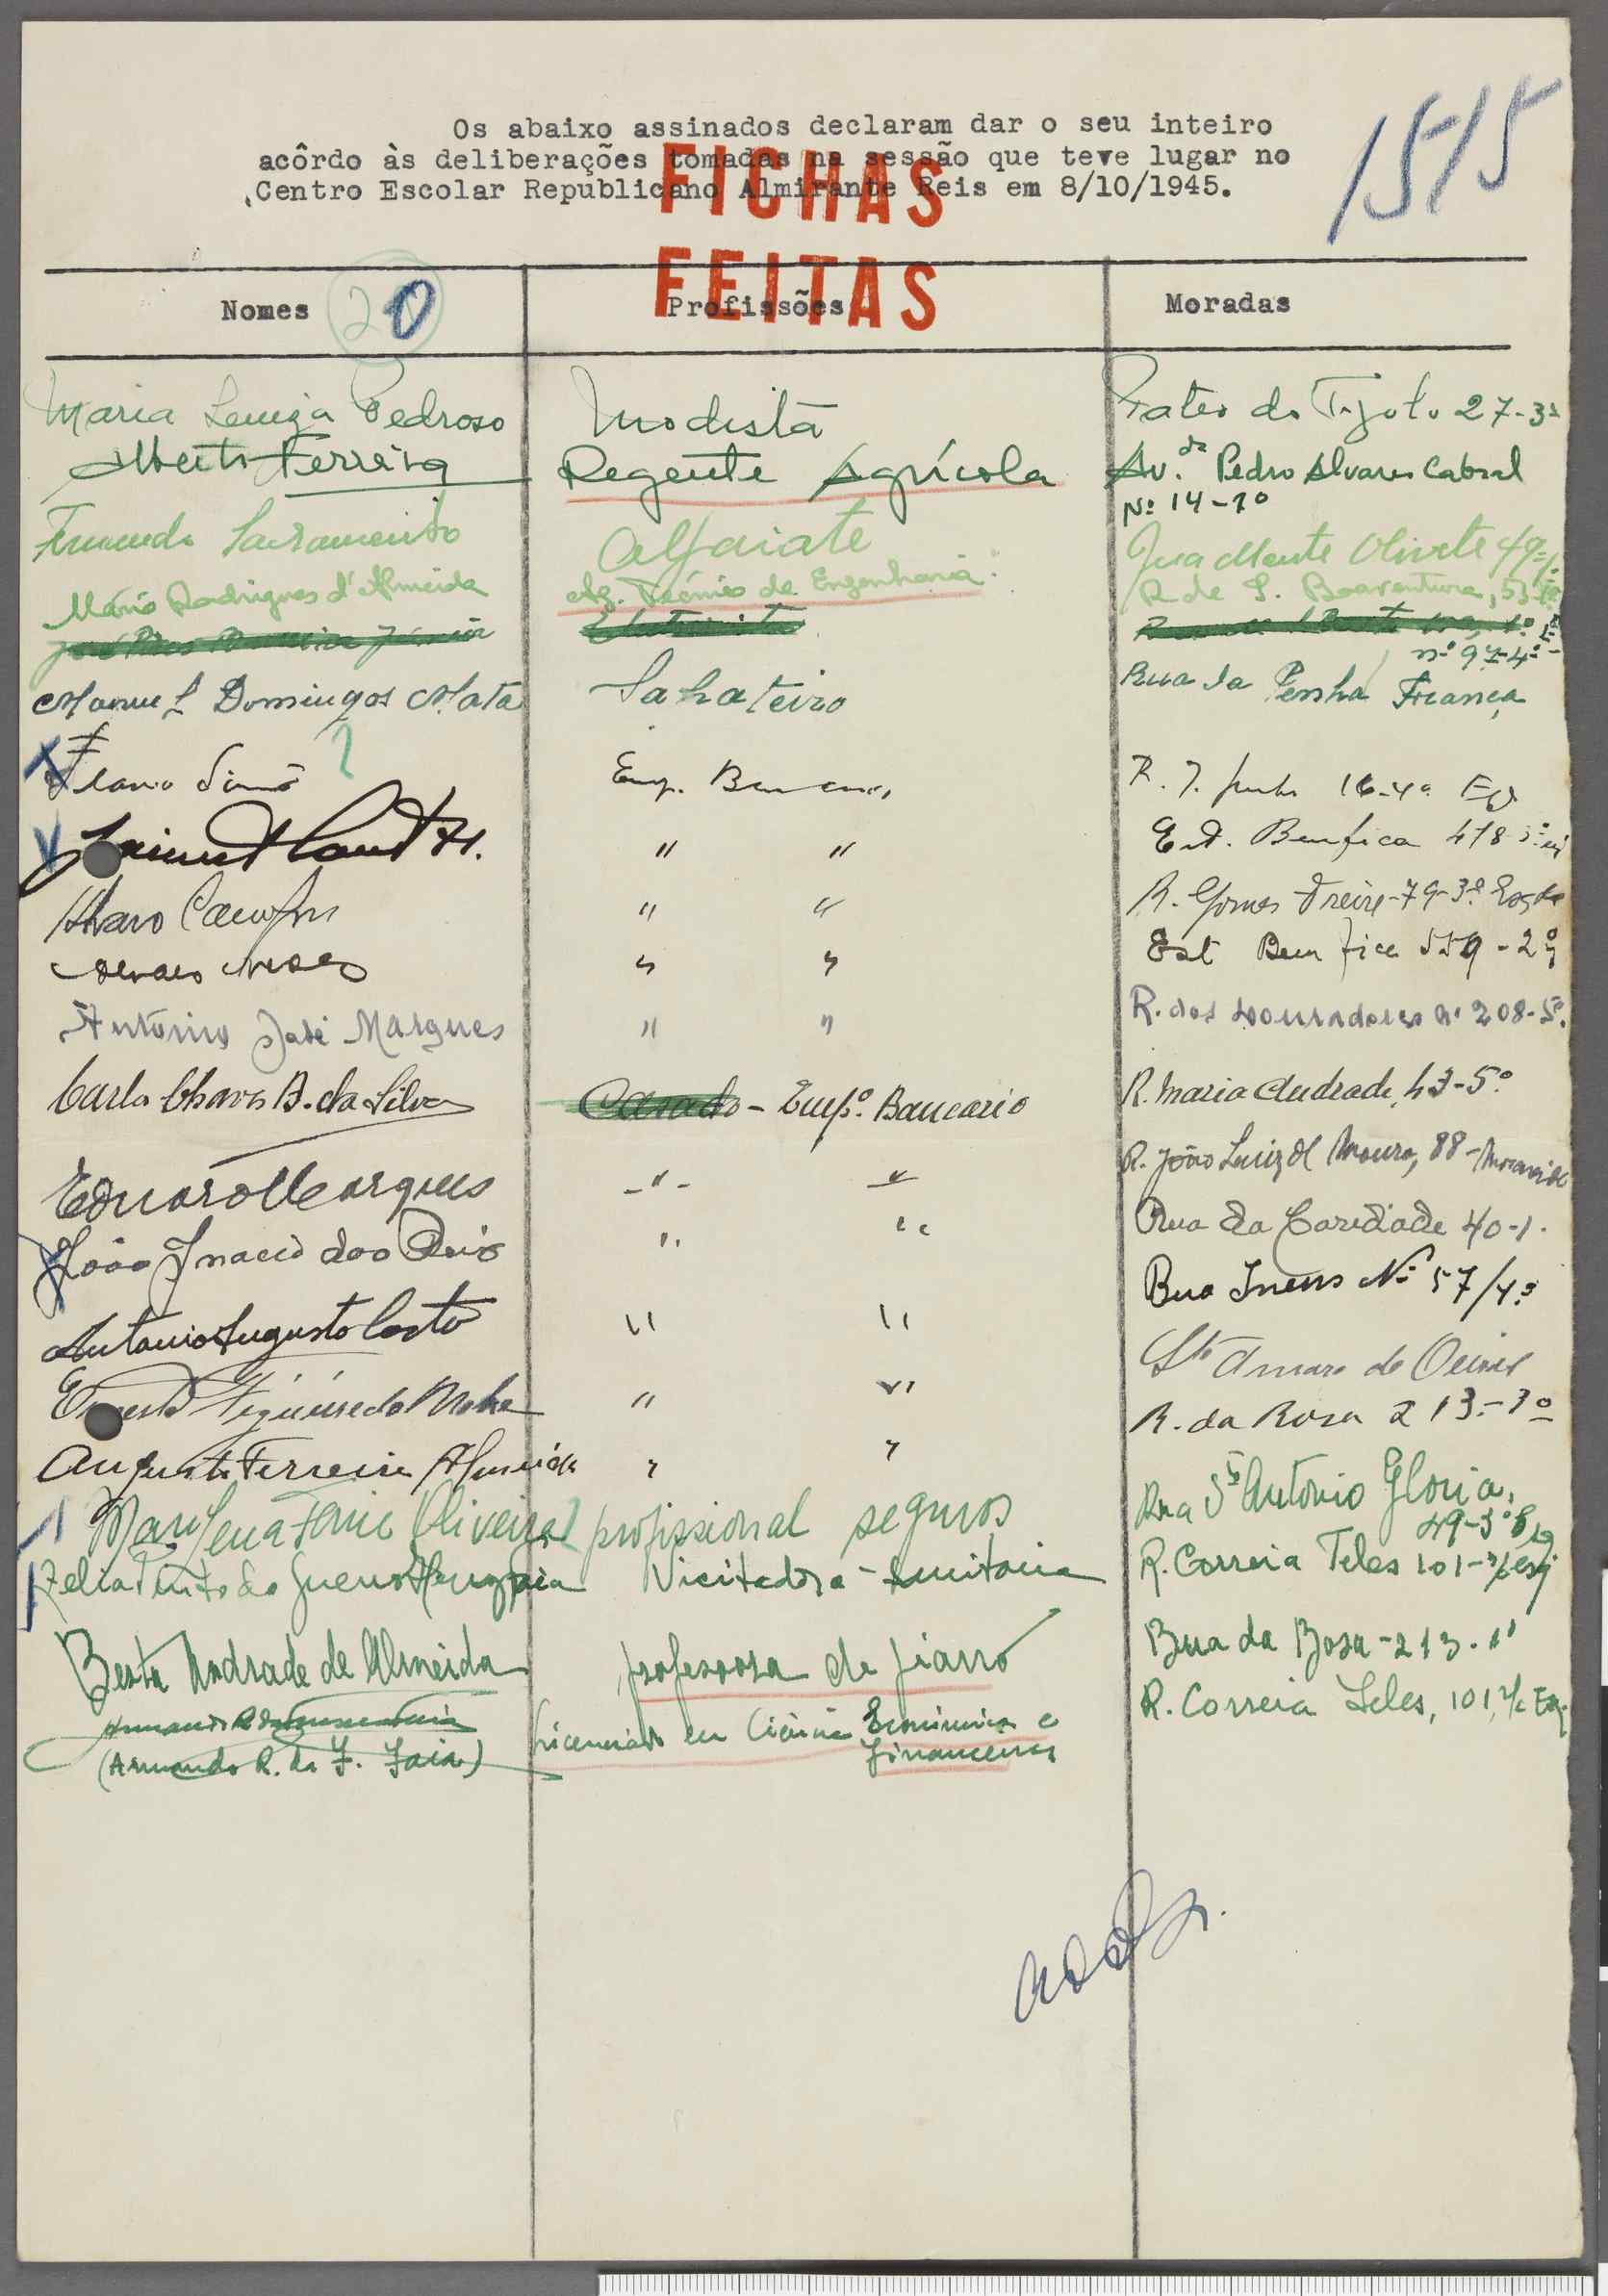 1515
Os abaixo assinados declaram dar o seu inteiro
acôrdo às deliberações tomadas na sessão que teve lugar no
Centro Escolar Republicano Almirante Reis em 8/10/1945.
FICHAS
FEITAS
Nomes 20 Profissões Moradas
Maria Luiza Pedroso Modista Pateo do Tijolo 27-3º
Alberto Ferreira Regente Agrícola Av.da Pedro Alvares Cabral
Nº 14-1º
Fernando Sacramento Alfaiate Olivete
Mário Rodrigues d'Almeida Ag. Técnico de Engenharia. R de S. Boaventura, 53
Electricista
nº 97-4º
Manuel Domingos Mata Sapateiro Rua da Penha França
Emp. Bancario 16-4º
" " Est. Benfica 418
Alvaro " " R. Gomes Freire-79-3º Esqdo
" " Est Benfica 559-2º
António José Marques " " R. dos Douradores nº 208-5º.
Carlos Chaves B. da Silva Casado - Empº. Bancario R. Maria Andrade, 43-5º
Eduardo Marques -"- " R. João Luiz de Moura, 88-
João Inacio dos Reis " " Rua da Caridade 40-1.
Antonio Augusto Costa " " Rua Ineus Nº 57/4º
Ernesto Figueiredo " " Sto Amaro de Oeiras
Augusto Ferreira Almeida " " R. da Rosa 213-3º
Oliveira profissional seguros Rua Stº António Glória,
49-3º Eq
Zelia Pinto da Visitadora-sanitaria R. Correia Teles 101-r/c esq
Berta Andrade de Almeida professora de piano Rua da Rosa-213-1º
Licenciado em Ciências Económicas e R. Correia Teles, 101, r/c Esq.
(Armando R. da F. Faia) Financeiras